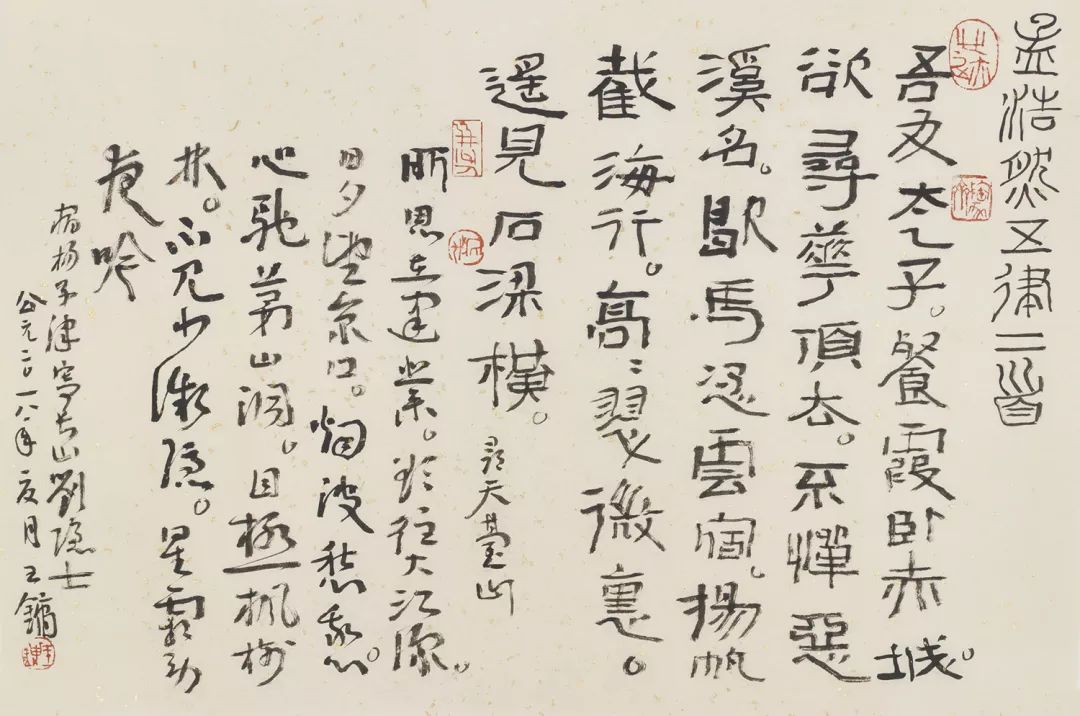 孟浩然五律二首
吾友太乙子。餐霞卧赤城。
欲尋華頂去。不憚惡
溪名。歇馬憑雲宿。揚帆
截海行。高〻翠微裏。
遥見石梁橫。尋天臺山
所思在建業。欲往大江深。
日夕望京口。烟波愁我心。
心馳茅山洞。目極楓樹
林。不見少微隱。星霜勞
夜吟
宿揚子津寄長山劉隱士
公元二〇一八年夏月王鏞